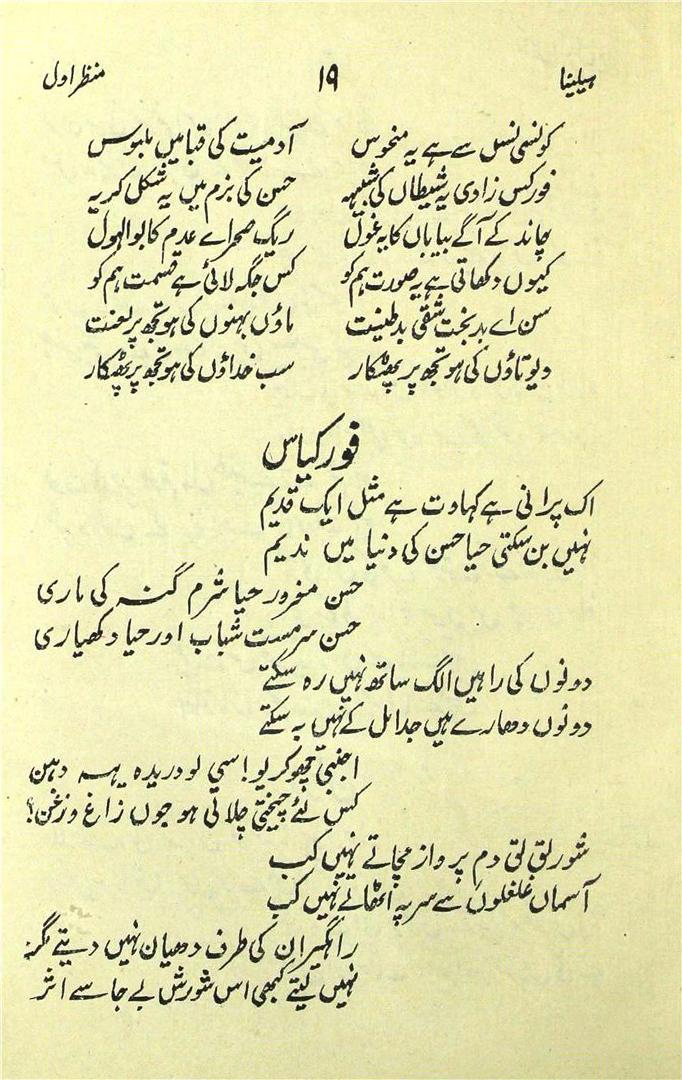 ہیلینا ۱۹ منظر اول
کونسی نسل سے ہے یہ منحوس آدمیت کی قبا میں ملبوس
فورکس زادی یہ شیطاں کی شبیہہ حسن کی بزم میں یہ شکل کریہ
چاند کے آگے بیاباں کا یہ غول ریگ صحراے عدم کا بوالہول
کیوں دکھاتی ہے یہ صورت ہم کو کس جگہ لائی ہے قسمت ہم کو
سن اے بدبخت شقی بد طینت ماؤں بہنوں کی ہو تجھ پر لعنت
دیوتاؤں کی ہو تجھ پر پھٹکار سب خداؤں کی ہو تجھ پر پھٹکار
فورکیاس
اک پرانی ہے کہاوت ہے مثل ایک قدیم
نہیں بن سکتی حیا حسن کی دنیا میں ندیم
حسن مغرور حیا شرم گنہ کی ماری
حسن سرمست شباب اور حیا دکھیاری
دونوں کی راہیں الگ ساتھ نہیں رہ سکتے
دونوں دھارے ہیں جدا مل کے نہیں بہ سکتے
اجنبی چھوکریو! اسی لو دریدہ یہہ دہن
کس لئے چیختی چلاتی ہو جوں زاغ و زغن؟
شور لق لق دم پرواز مچاتے نہیں کب
آسماں غلغلوں سے سر پہ اٹھاتے نہیں کب
راہگیر ان کی طرف دھیان نہیں دیتے مگر
نہیں لیتے کبھی اس شورش بے جا سے اثر